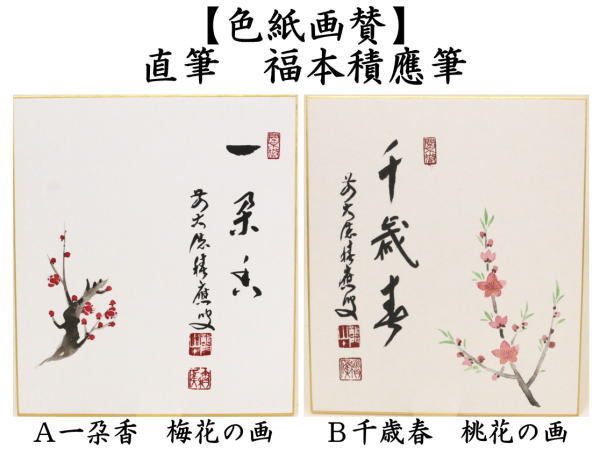 【色紙画賛】
直筆　福本積應筆
一朶香
前大徳積應叟
千歳春
前大徳積應叟
A一朶香　梅花の画
B千歳春　桃花の画